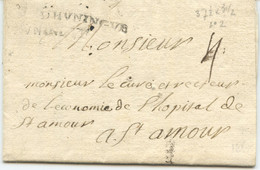 DHUNINGUE
Monsieur
4
monsieur le curé et recteur
de l'economie de l'hopital de
St amour
a St amour